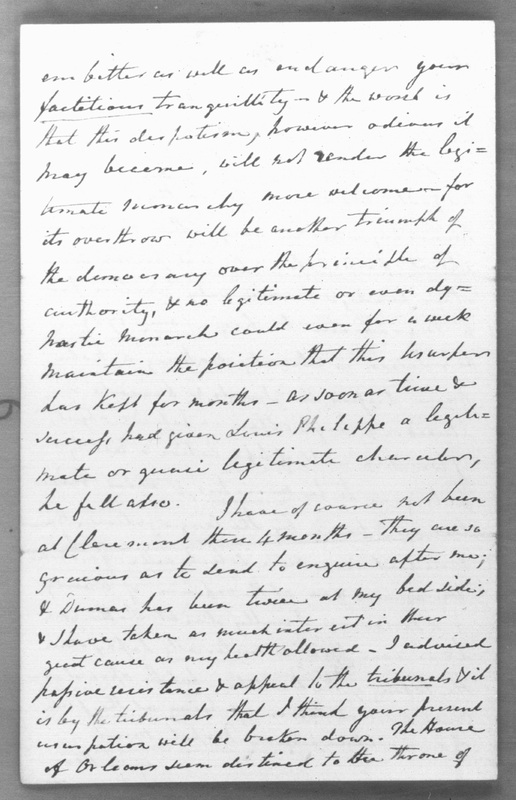 embitter as well as endanger your
factitious tranquillity – & the worst is
that this despotism, however odious it
may become, will not render the legi=
timate monarchy more welcome – for
its overthrow will be another triumph of
the democracy over the principle of
authority, & no legitimate or even dy=
nastic Monarch could even for a week
maintain the position that this Usurper
has kept for months – as soon as time &
success had given Louis Philippe a legiti=
mate or quasi legitimate character,
he fell also. I have of course not been
at Claremont these 4 months – they are so
gracious as to send to enquire after me;
& Dumas has been twice at my bed side;
& I have taken as much interest in their
great cause as my health allowed – I advised
passive resistance & appeal to the tribunals & it
is by the tribunals that I think your present
usurpation will be broken down. The House
of Orleans seem destined to the throne of